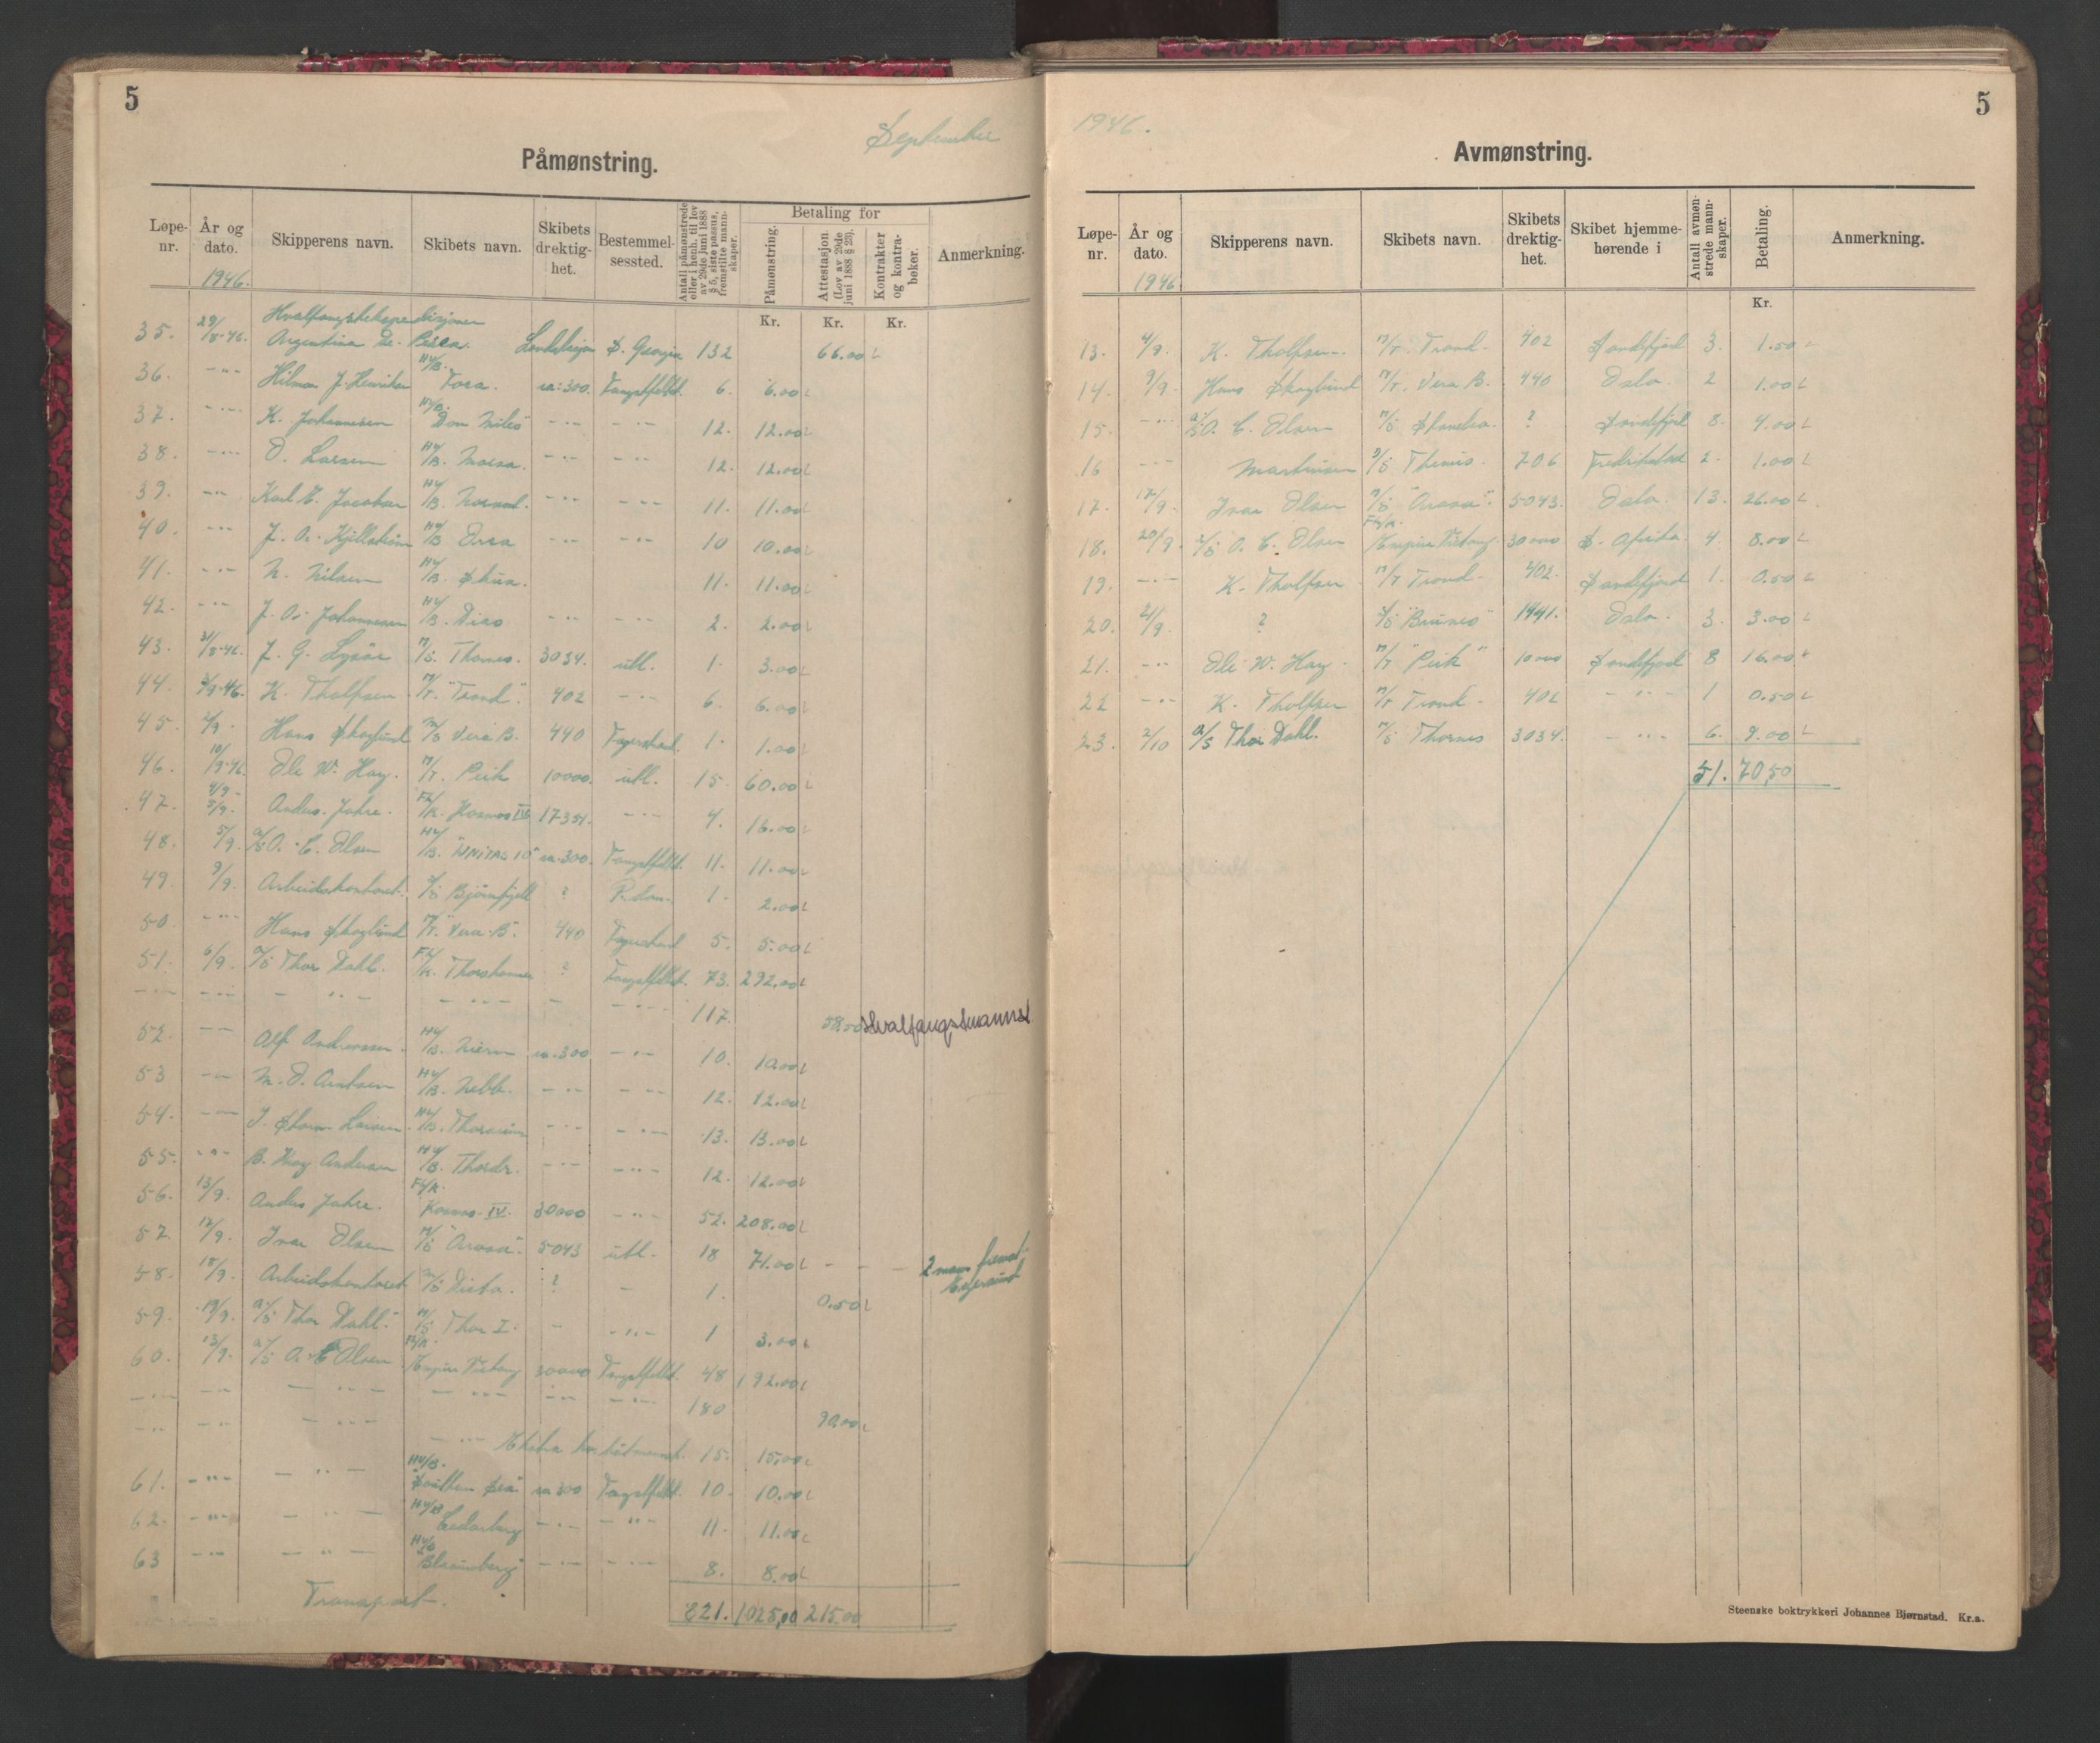 5
September
Påmønstring.
Løpe-nr. År og dato. Skipperens navn. Skibets navn. Skibets drektig-het. Bestemmel-sessted. Antall påmønstrede eller i henh. til lov av 29de juni 1888 § 5, siste passus, fremstilte mann-skaper. Betaling for Påmønstring. Attestasjon (Lov av 29de juni 1888 § 23). Kontrakter og kontra-bøker. Anmerkning.
1946.
Kr. Kr. Kr.
Hvalfangstekspedisjonen
35. 29/8-46. Argentina De Pesca. S. Georgia 132 66.00
36. -"- Hilmar J. Henriksen Hv/B. Fora. ca. 300. Fangstfeltet. 6. 6.00
37. -"- K. Johannesen Hv/B. Don Miles -"- -"- 12. 12.00
38. -"- O. Larsen Hv/B. Morsa. -"- -"- 12. 12.00
39. -"- Karl E. Jacobsen Hv/B. -"- -"- 11. 11.00
40. -"- J. A. Kjellstrøm Hv/B Orca -"- -"- 10 10.00
41. -"- N. Nilsen Hv/B. Skua. 11. 11.00
42. -"- J. A. Johannesen Hv/B. Dias -"- -"- 2. 2.00
43. 31/8-46. J. G. M/S. Thornes. 3034. utl. 1. 3.00
44. /9-46. K. Tholfsen M/T. "Trond" 402 -"- 6. 6.00
45. /9. Hans Skoglund M/S Vera B. 440 Fagerstrand. 1. 1.00
46. 10/9-46. Ole W. Hay. M/T. Peik 10000. utl. 15. 60.00
47. 4/9-5/9. Anders Jahre. Fl/K. Kosmos III 17351. -"- 4. 16.00
48. 5/9. A/S O. C. Olsen Hv/B. "UNITAS 10" ca. 300. Fangstfeltet. 11. 11.00
49. 9/9. Arbeidskontoret. Bjørnfjell ? 1. 2.00
50. -"- Hans Skoglund M/T. "Vera B". 440 Fagerstrand 5. 5.00
51. 6/9. A/S Thor Dahl. Fl/K. Thorshammer ? Fangstfeltet. 73. 292.00
-"- -"- -"- -"- - -"- 117. 58.50 Hvalfangstmannsk
52. -"- Alf Andreassen. Hv/B. ca. 300 -"- 10. 10.00
53 -"- M. O. Arntsen Hv/B. Nebb. -"- -"- 12. 12.00
54. -"- Larsen. Hv/B. -"- -"- 13. 13.00
55. -"- B. Andersen Hv/B. Thordr. -"- -"- 12. 12.00
56. 13/9. Anders Jahre. Fl/K. Kosmos IV. 30000 -"- 52. 208.00
57. 12/9. Ivar Olsen M/S "Arosa". 5043 utl. 18 71.00 - - - 2 mann
58. 18/9. Arbeidskontoret M/S ? - 1. 0.50
59. 19/9. A/S Thor Dahl. M/S Thor I. - -"- 1 3.00
60. 13/9. A/S O. C. Olsen Fl/K. Empire Victory 30000 Fangstfeltet. 48 192.00
-"- -"- -"- -"- -"- -"- 180 90.00
-"- -"- -"- -"- Ekstra 15. 15.00
61. -"- -"- Hv/B. "Southern Sea" ca 300 Fangstfeltet. 10. 10.00
62. -"- -"- Hv/B Cedarberg -"- -"- 11. 11.00
63 -"- -"- Hv/B "Blaauwberg" -"- -"- 8. 8.00
Transport. 821. 1025,00 215.00
1946.
5
Avmønstring.
Løpe-nr. År og dato. Skipperens navn. Skibets navn. Skibets drektig-het. Skibet hjemme-hørende i Antall avmøn-strede mann-skaper. Betaling. Anmerkning.
1946
Kr.
13. 4/9. K. Tholfsen. M/T. Trond. 402 Sandefjord 3. 1.50
14. 9/9. Hans Skoglund M/T. Vera B. 440 Oslo. 2 1.00
15. -"- A/S O. C. Olsen ? Sandefjord 8. 4.00
16 -"- Martinsen Themis. 706 Fredrikstad 2. 1.00
17. 17/9. Ivar Olsen M/S "Arosa". 5043. Oslo. 13. 26.00
18. 20/9. A/S O. C. Olsen Fl/K. Empire Victory. 30000 S. Afrika 4. 8.00
19. -"- K. Tholfsen M/T Trond. 402. Sandefjord 1. 0.50
20. 21/9. ? "Brunes" 1441. Oslo. 3. 3.00
21. -"- Ole W. Hay. M/T "Peik" 10000 Sandefjord 8 16.00
22 -"- K. Tholfsen M/T Trond. 402 -"- 1 0.50
23. 2/10 A/S Thor Dahl. M/S Thornes 3034. -"- 6. 9.00
51. 70,50
Steenske boktrykkeri Johannes Bjørnstad. Kr.a.